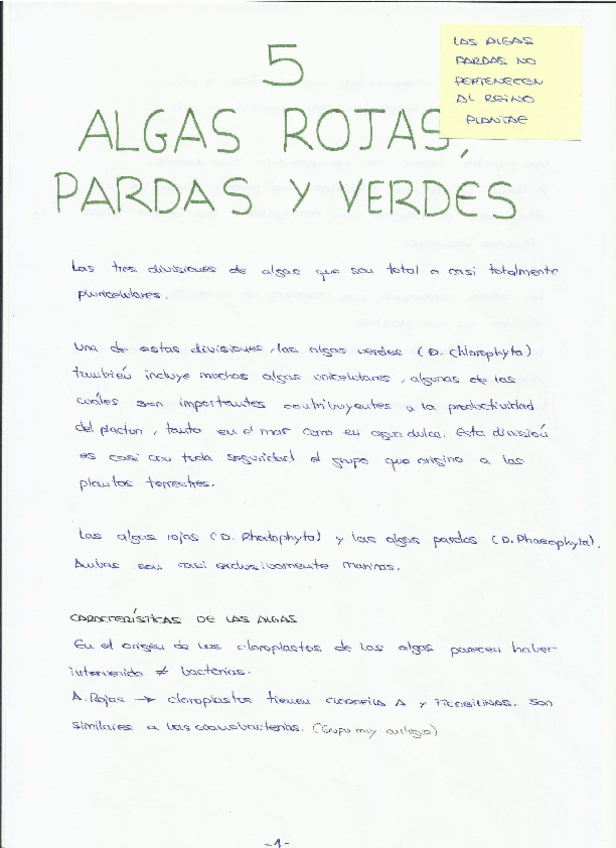 5
ALGAS ROJAS,
PARDAS Y VERDES
LAS ALGAS
PARDAS NO
PERTENECEN
AL REINO
PLANTAE
Las tres divisiones de algas que son total o casi totalmente
pluricelulares.
Una de estas divisiones, las algas verdes (D. Chlorophyta)
también incluye muchas algas unicelulares, algunas de las
cuáles son importantes contribuyentes a la productividad
del placton, tanto en el mar como en agua dulce. Esta división
es casi con toda seguridad el grupo que origino a las
plantas terrestres.
Las algas rojas (D. Rhodophyta) y las algas pardas (D. Phaeophyta).
Ambas son casi exclusivamente marinas.
CARACTERÍSTICAS DE LAS ALGAS
En el origen de los cloroplastos de las algas parecen haber
intervenido ≠ bacterias.
A. Rojas → cloroplastos tienen CLOROFILA A y FICOBILINAS. Son
similares a las cianobacterias. (Grupo muy antiguo)
-1-